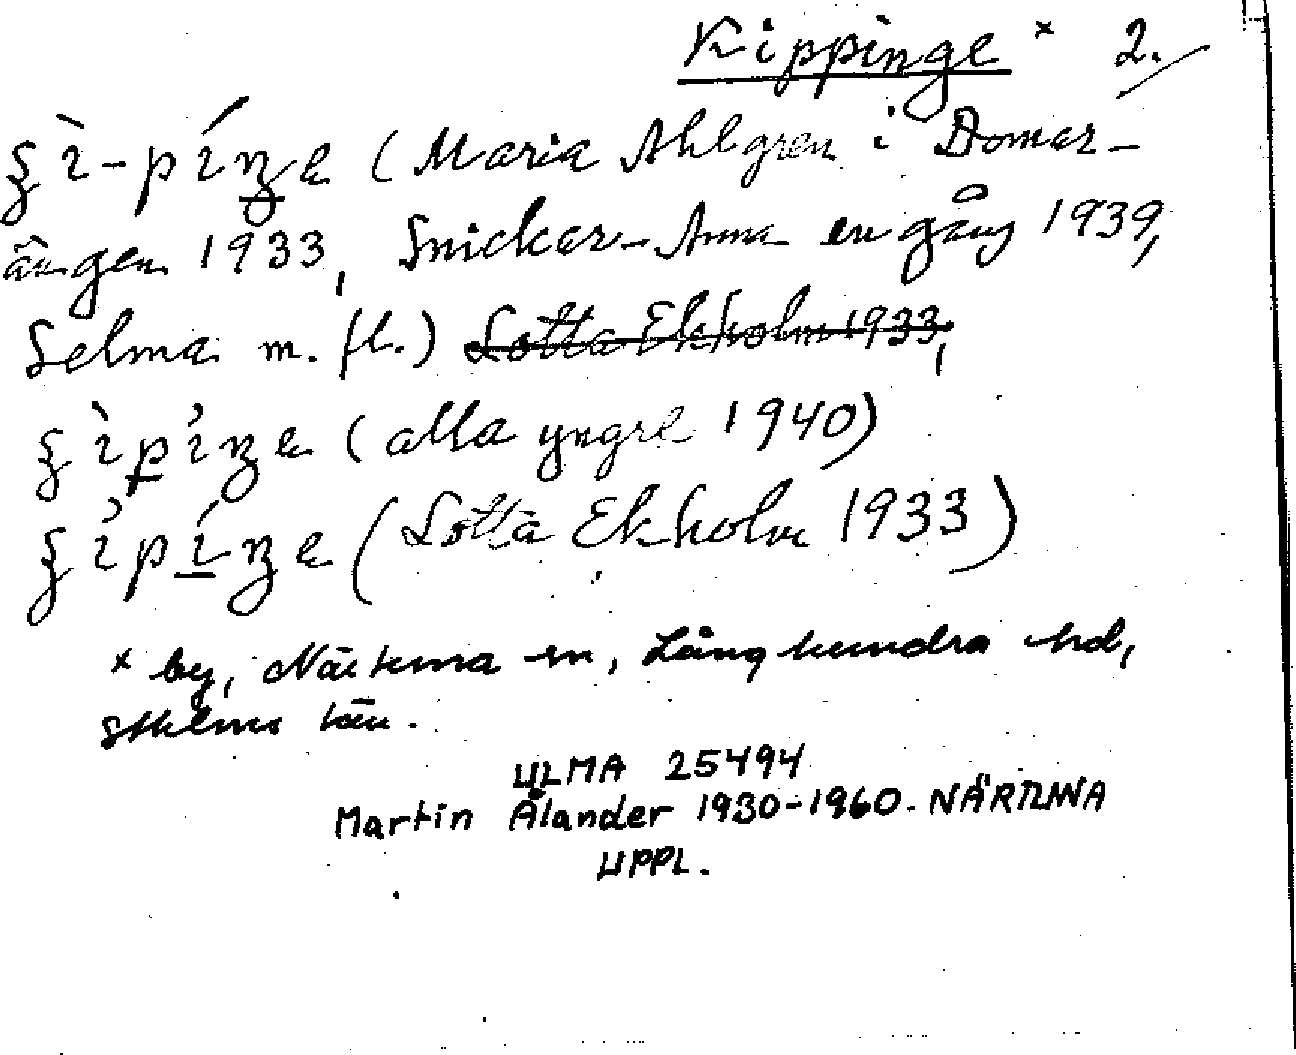 Kippinge × 2.
ʂì-píŋe (Maria Ahlgren i Domar-
ängen 1933, Snickar-Anna en gång 1939,
Selma m. fl.) Lotta Ekholm 1933,
(alla yngre 1940)
(Lotta Ekholm 1933)
× by, Närtuna sn, Långhundra hd,
Sthlms län.
ULMA 25494
Martin Ålander 1930-1960. NÄRTUNA
UPPL.